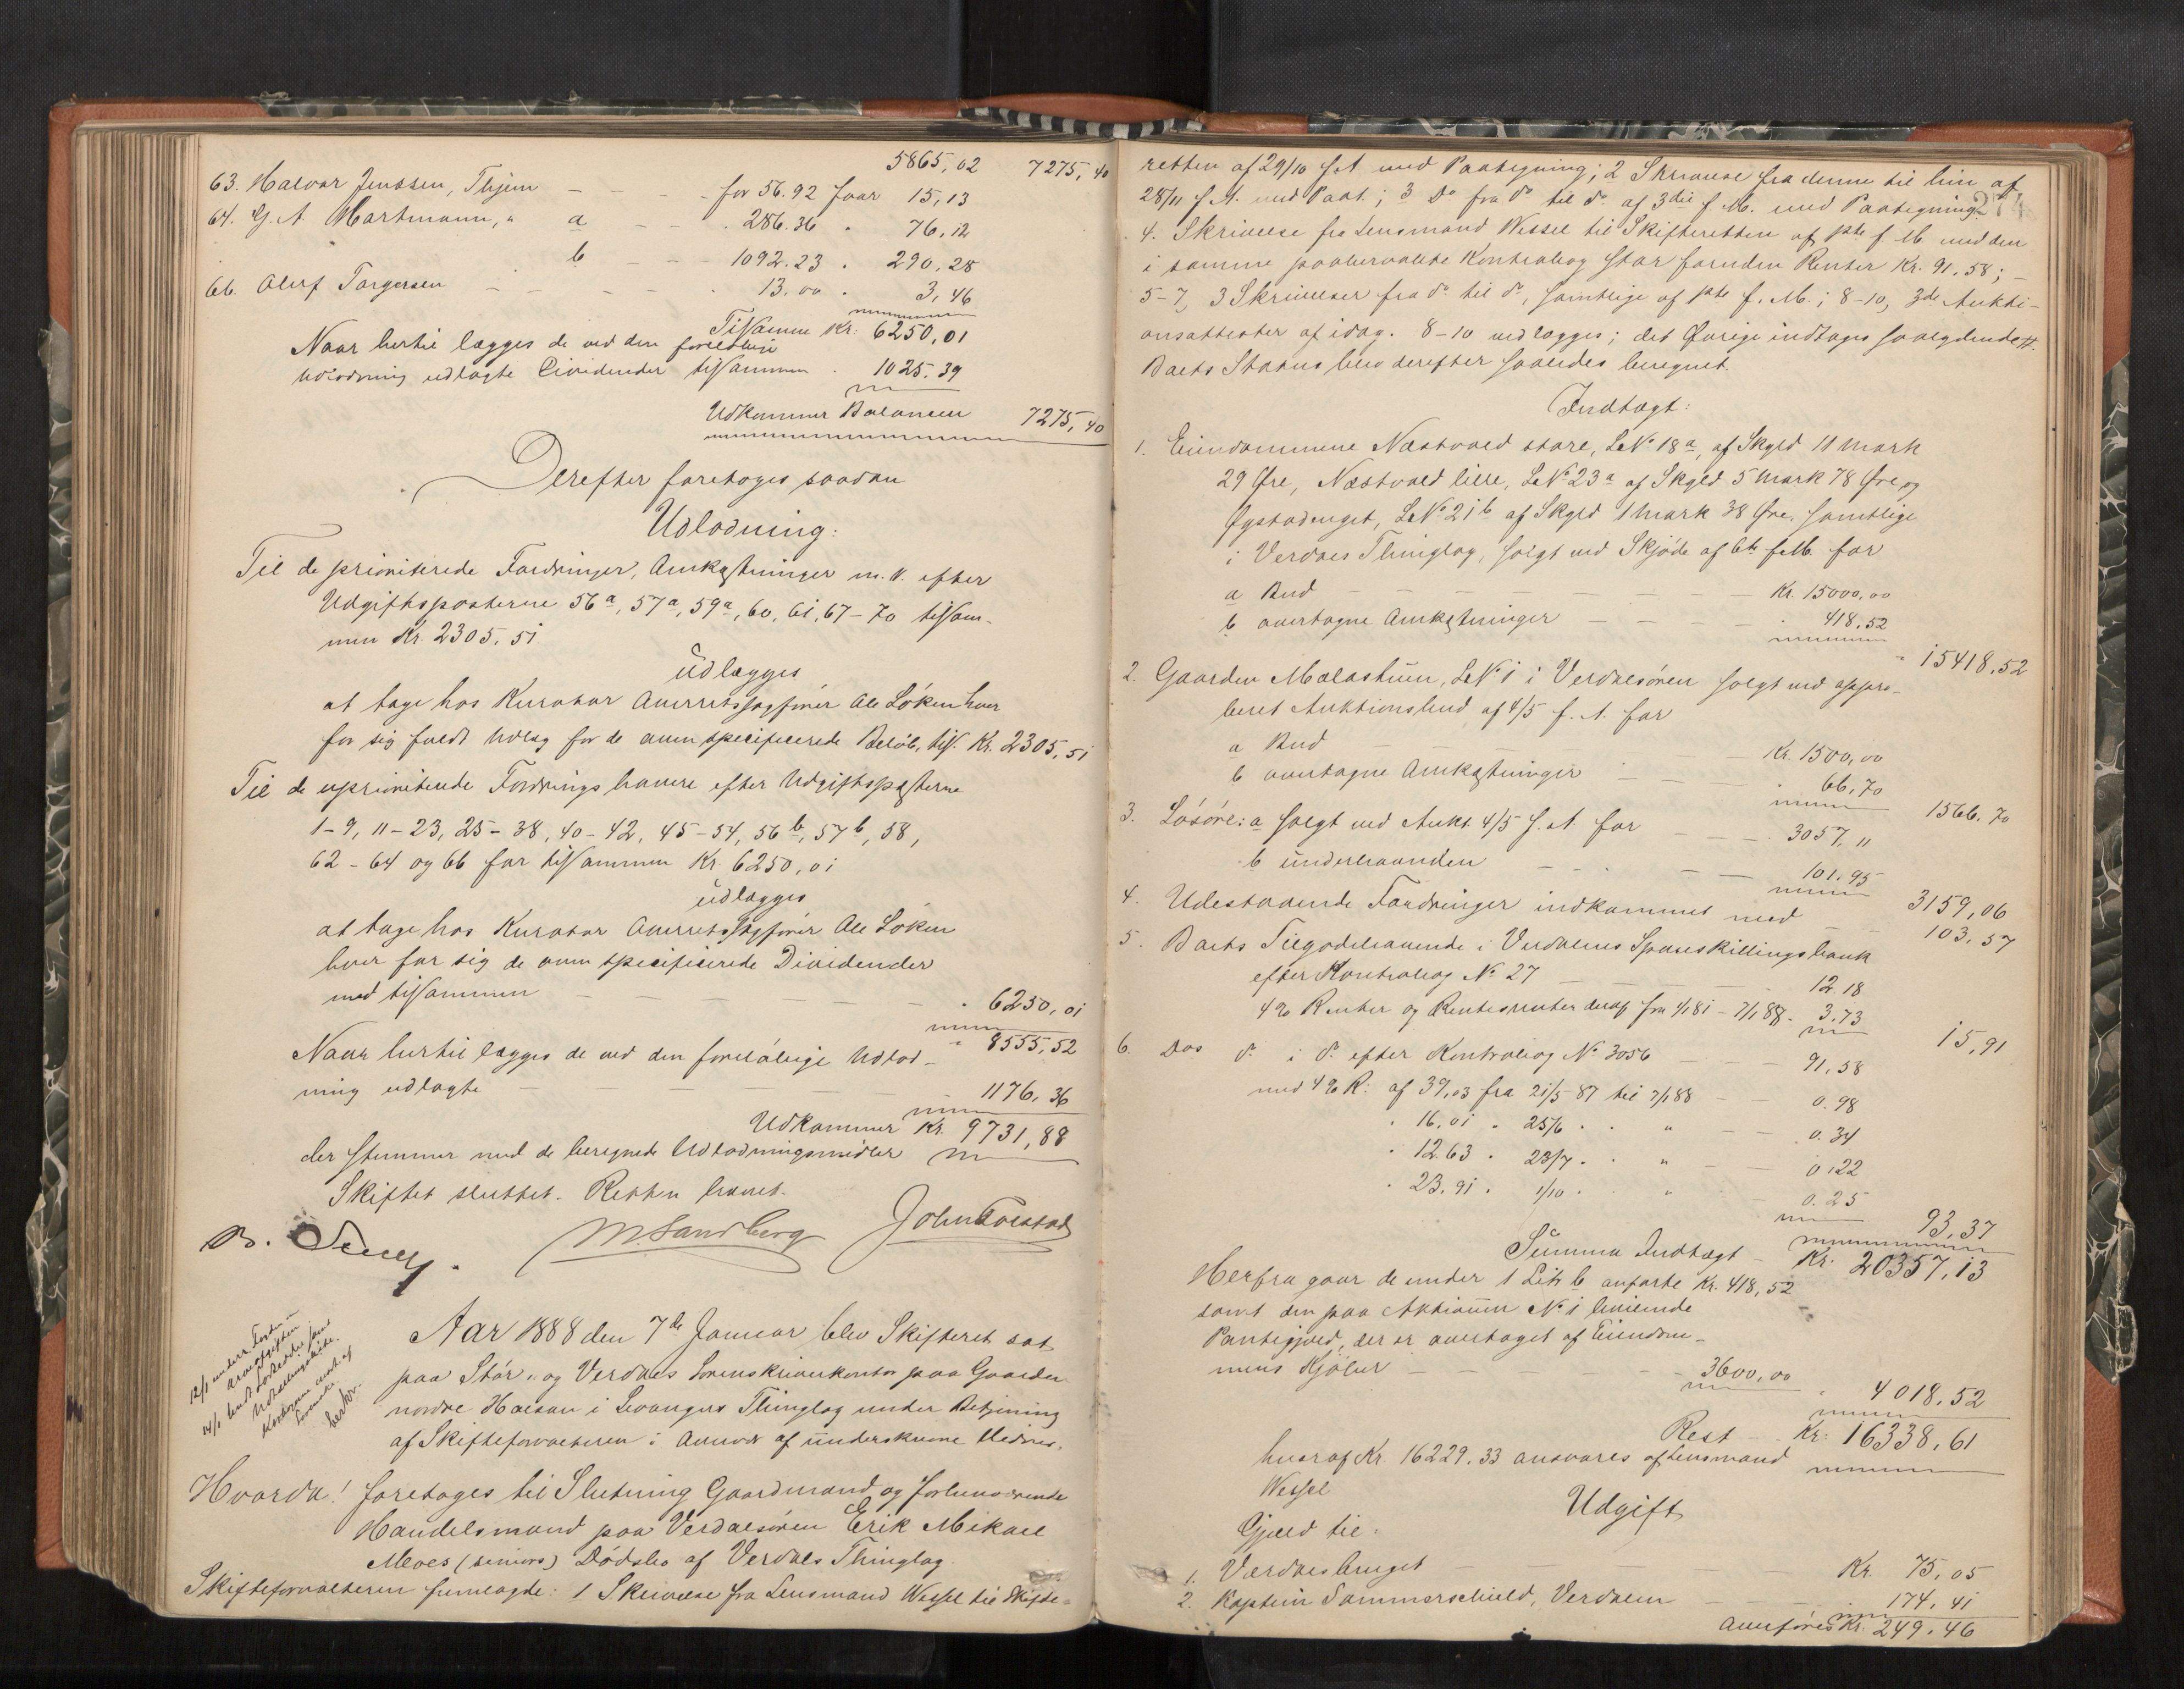 5865,02 7275,40
63. Halvor Jenssen, Thjem — — for 56.92 faar 15,13
64. G. A. Hartmann, " a — — . 286.36 . 76,12
b — — 1092.23 . 290,28
66. Oluf Torgersen — — — . 13.00 . 3,46
Tilsammen Kr. 6250,01
Naar hertil lægges de ved den foreløbige
Udlodning udlagte Dividender tilsammen . 1025.39
Udkommer Balancen 7275,40
Derefter foretoges saadan
Udlodning:
Til de prioriterede Fordringer, Omkostninger m. v. efter
Udgiftsposterne 56 a, 57 a, 59 a, 60, 61, 67–70 tilsam-
men Kr. 2305.51
udlægges
at tage hos Kurator Overretssagfører Ole Løken hver
for sig fuldt Udlæg for de ovenspecificerede Beløb, tils. Kr. 2305,51
Til de uprioriterede Fordringshavere efter Udgiftsposterne
1–9, 11–23, 25–38, 40–42, 45–54, 56 b, 57 b, 58,
62–64 og 66 for tilsammen Kr. 6250,01
udlægges
at tage hos Kurator Overretssagfører Ole Løken
hver for sig de ovenspecificerede Dividender
med tilsammen — — — — . 6250,01
" 8555,52
Naar hertil lægges de ved den foreløbige Udlod-
ning udlagte — — — — 1176,36
Udkommer Kr. 9731,88
der stemmer med de beregnede Udlodningsmidler
Skiftet sluttet. Retten hævet.
M. Sandberg
Aar 1888 den 7de Januar blev Skifteret sat
paa Stør- og Verdals Sorenskriverkontor paa Gaarden
nordre Halsan i Levangers Thinglag under Betjening
af Skifteforvalteren i Overvær af underskrevne Vidner.
Hvorda! foretoges til Slutning Gaardmand og forhenværende
Handelsmand paa Verdalsøren Erik Mikael
Moes (seniors) Dødsbo af Verdals Thinglag.
Skifteforvalteren fremlagde: 1 Skrivelse fra Lensmand Wessel til Skifte-
retten af 29/10 f. A. med Paategning; 2 Skrivelse fra denne til hin af
28/11 f. A. med Paat.; 3 Do fra do til do af 3die f. M. med Paategning.
4. Skrivelse fra Lensmand Wessel til Skifteretten af 1ste f. M. med den
i samme paaberaabte Kontrabog stor foruden Renter Kr. 91.58; —
5–7, 3 Skrivelser fra do til do, samtlige af 1ste f. M.; 8–10, 3de Aukti-
onsattester af idag. 8–10 vedlægges; det Øvrige indtages saalydende #.
Boets Status blev derefter saaledes beregnet.
Indtægt:
1. Eiendommene Næstvold store, L. No 18 a, af Skyld 11 Mark
29 Øre, Næstvold lille, L. No 23 a af Skyld 5 Mark 78 Øre og
Øgstadenget, L. No 21 b af Skyld 1 Mark 38 Øre, samtlige
i Verdals Thinglag, solgt ved Skjøde af 6te f. M. for
a Bud — — — — — — Kr. 15000,00
b overtagne Omkostninger — — — . 418.52
" 15418,52
2. Gaarden Molastuen, L. No 1 i Verdalsøren solgt ved appro-
beret Auktionsbud af 4/5 f. A. for
a Bud — — — — Kr. 1500,00
b overtagne Omkostninger — — " 66,70
1566.70
3. Løsøre: a solgt ved Aukt. 4/5 f. A. for — — 3057,11
b underhaanden — — — 101.95
3159,06
4. Udestaaende Fordringer indkommet med — 103,57
5. Boets Tilgodehavende i Verdalens Spareskillingsbank
efter Kontrabog No 27 — — — 12.18
4% Renter og Rentesrenter deraf fra 1/1 81 – 7/1 88 . 3.73
15,91
6. Dos do i do efter Kontrabog No 3056 — — 91,58
med 4% R: af 39,03 fra 21/5 87 til 7/1 88 — 0.98
. 16,01 . 25/6 . . " — 0.34
. 12.63 . 23/7 . . " — 0.22
. 23.91 . 1/10 . " — 0.25
93,37
Summa Indtægt — Kr. 20357,13
Herfra gaar de under 1 Litr b anførte Kr. 418,52
samt den paa Aktivum No 1 hvilende
Pantegjæld, der er overtaget af Eiendom-
mens Kjøber — — — — 3600,00
" 4018.52
Rest — Kr. 16338,61
hvoraf Kr. 16229.33 ansvares af Lensmand
Wessel
Udgift
Gjæld til:
1. Værdalsbruget — — — Kr. 75,05
2. Kaptein Sommerschield, Verdalen — 174,41
Overføres Kr. 249.46